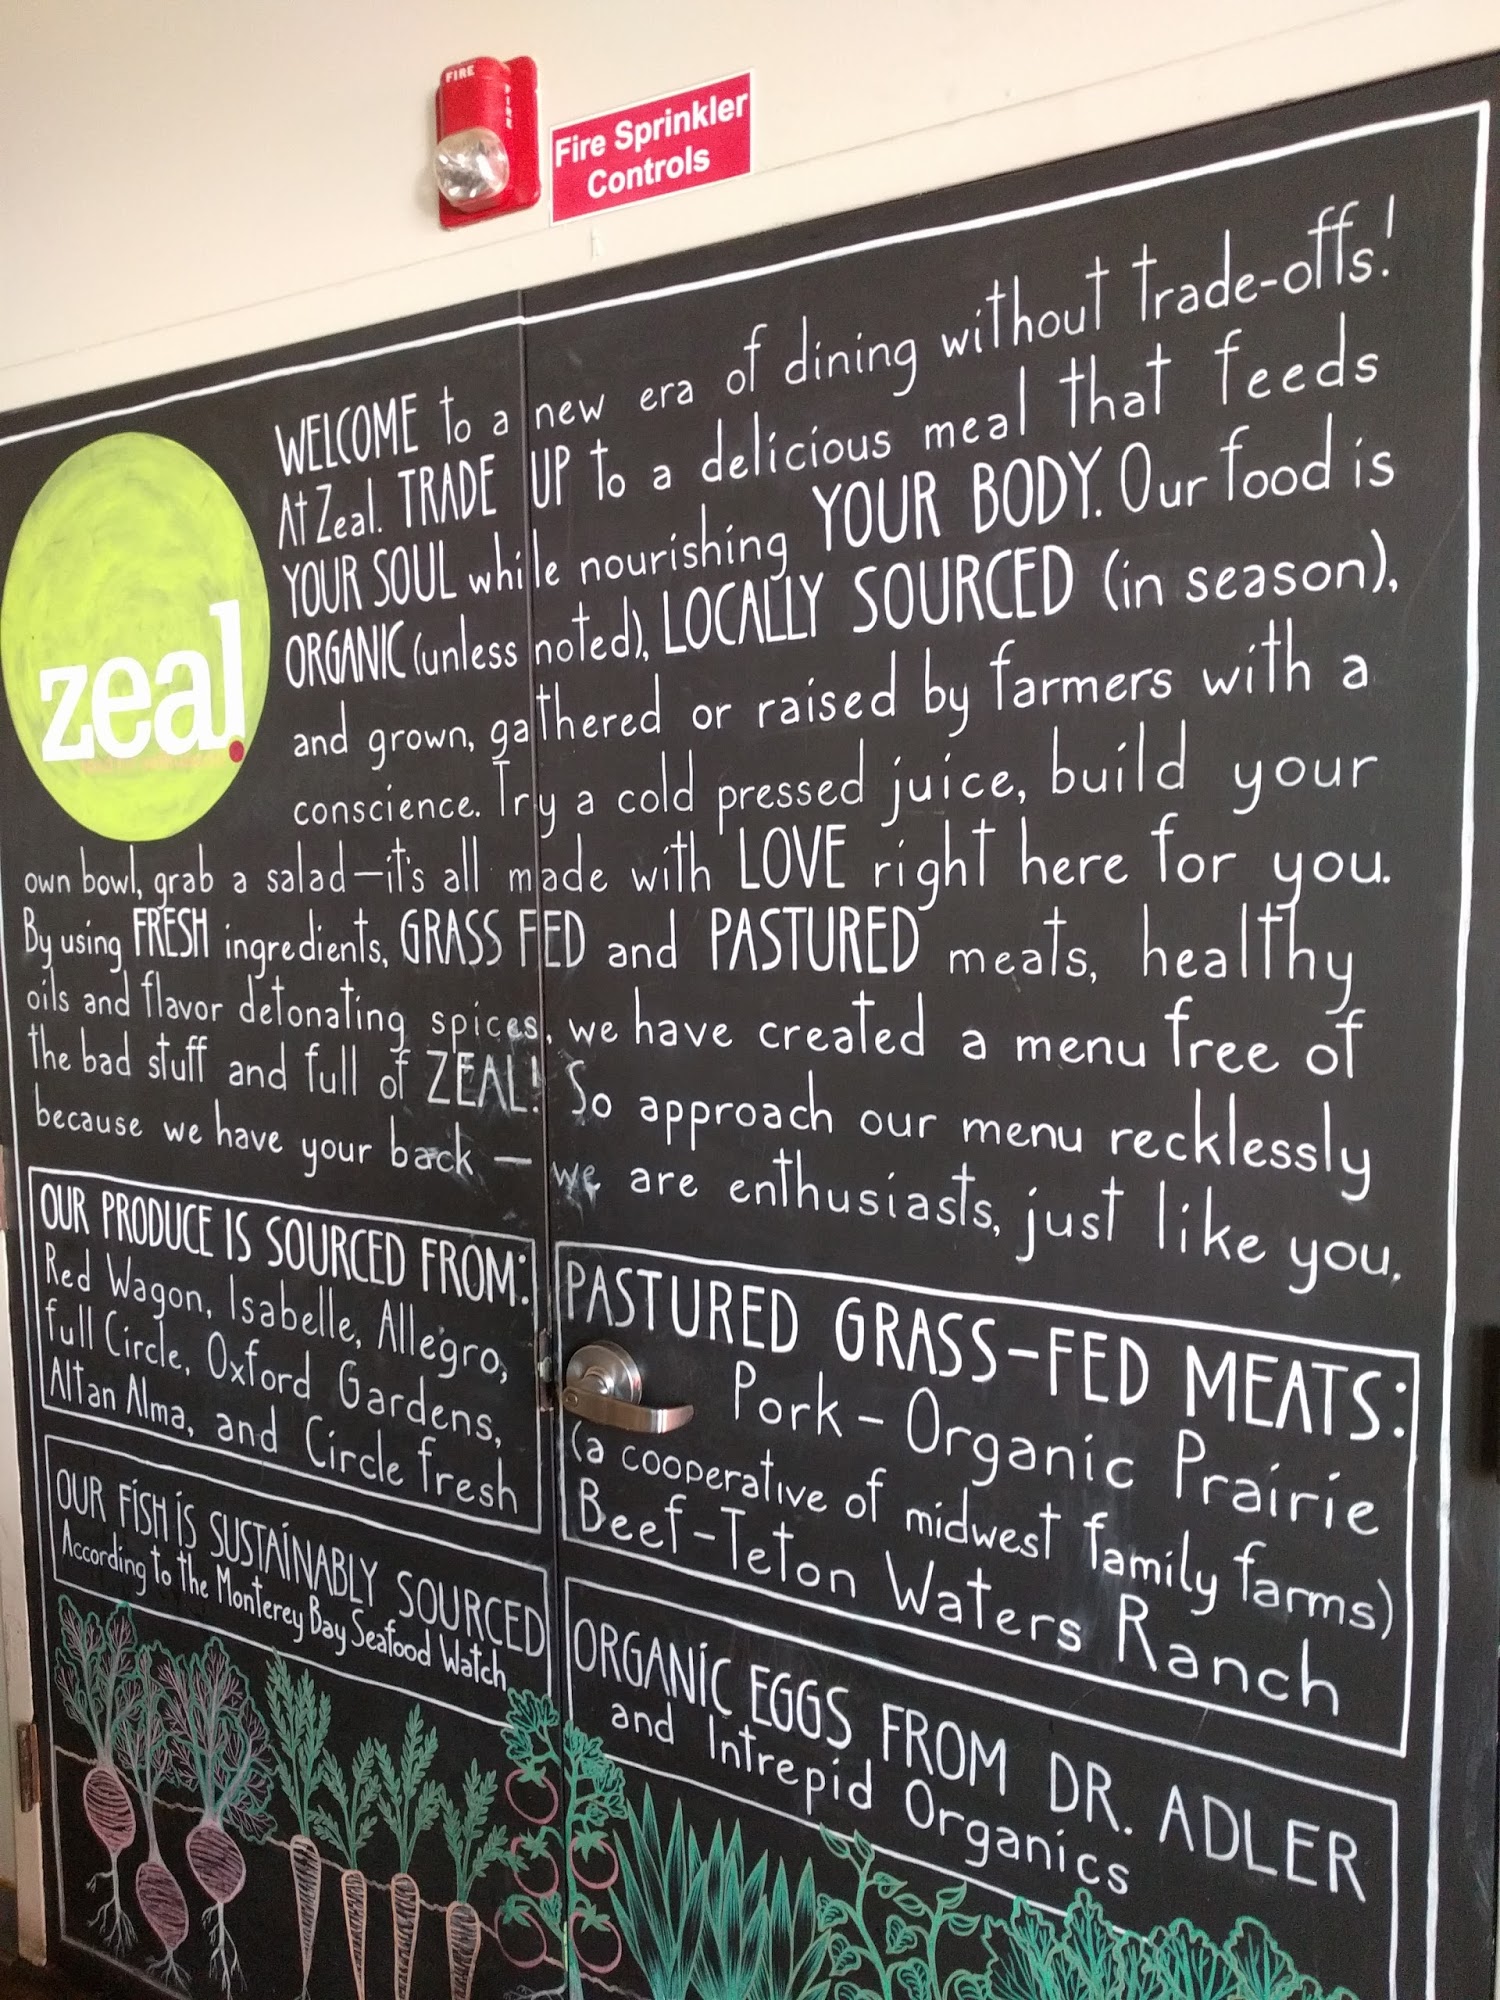 FIRE
FIRE
Fire Sprinkler
Controls
zeal.
WELCOME to a new era of dining without trade-offs!
At Zeal. TRADE UP to a delicious meal that feeds
YOUR SOUL while nourishing YOUR BODY. Our food is
ORGANIC (unless noted), LOCALLY SOURCED (in season),
and grown, gathered or raised by farmers with a
conscience. Try a cold pressed juice, build your
own bowl, grab a salad—it's all made with LOVE right here for you.
By using FRESH ingredients, GRASS FED and PASTURED meats, healthy
oils and flavor detonating spices, we have created a menu free of
the bad stuff and full of ZEAL! So approach our menu recklessly
because we have your back — we are enthusiasts, just like you.
OUR PRODUCE IS SOURCED FROM:
Red Wagon, Isabelle, Allegro,
full Circle, Oxford Gardens,
Altan Alma, and Circle fresh
OUR FISH IS SUSTAINABLY SOURCED
According to the Monterey Bay Seafood Watch
PASTURED GRASS-FED MEATS:
Pork - Organic Prairie
(a cooperative of midwest family farms)
Beef - Teton Waters Ranch
ORGANIC EGGS FROM DR. ADLER
and Intrepid Organics